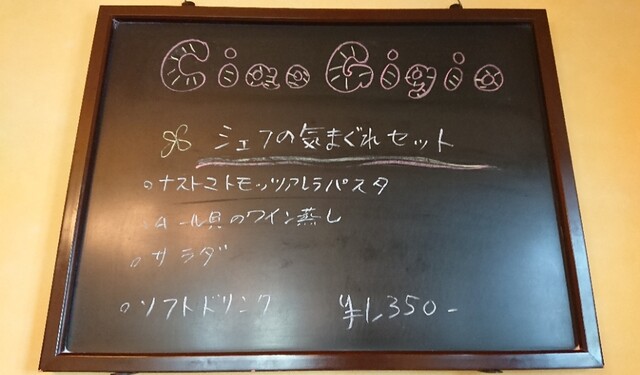 Ciao Gigio
シェフの気まぐれセット
○ナストマトモッツァレラパスタ
○ムール貝のワイン蒸し
○サラダ
○ソフトドリンク ¥1,350-